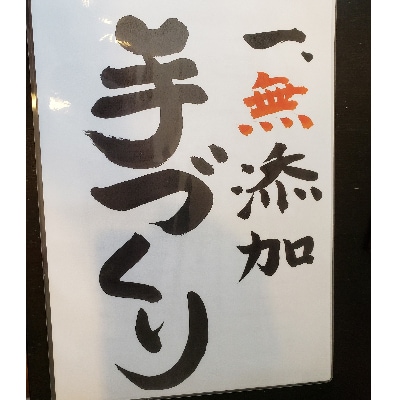 一、無添加
手づくり